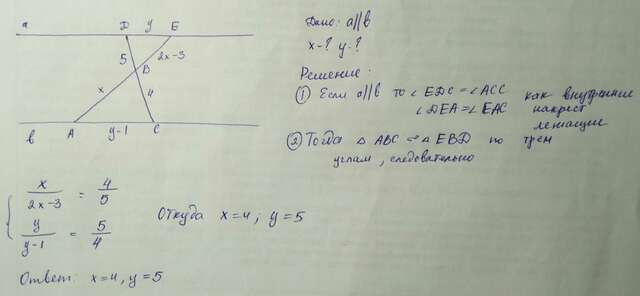 a Д y E
5 2x-3
B
x 4
b A y-1 C
Дано: a||b
x-? y-?
Решение:
① Если a||b то ∠EDC=∠ACC как внутренние
∠DEA=∠EAC накрест
лежащие
② Тогда △ABC ~ △EBD по трем
углам, следовательно
x/2x-3 = 4/5
y/y-1 = 5/4
Откуда x=4; y=5
Ответ: x=4, y=5